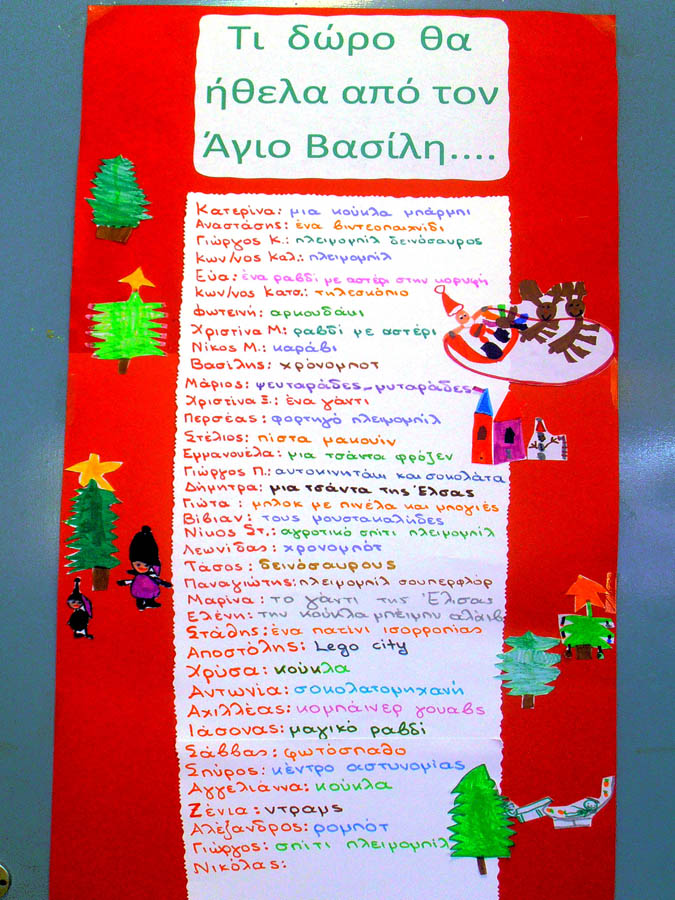 Τι δώρο θα
ήθελα από τον
Άγιο Βασίλη....
Κατερίνα: μια κούκλα μπάρμπι
Αναστάσης: ένα βιντεοπαιχνίδι
Γιώργος Κ.: πλειμομπίλ δεινόσαυρος
Κων/νος Καλ.: πλειμομπίλ
Εύα: ένα ραβδί με αστέρι στην κορυφή
Κων/νος Κατσ.: τηλεσκόπιο
Φωτεινή: αρκουδάκι
Χριστίνα Μ: ραβδί με αστέρι
Νίκος Μ.: καράβι
Βασίλης: χρόνομποτ
Μάριος: ψευταράδες-μυταράδες
Χριστίνα Ξ.: ένα γάντι
Περσέας: φορτηγό πλειμομπίλ
Στέλιος: πίστα μακουίν
Εμμανουέλα: μια τσάντα φρόζεν
Γιώργος Π.: αυτοκινητάκι και σοκολάτα
Δήμητρα: μια τσάντα της Έλσας
Γιώτα: μπλοκ με πινέλα και μπογιές
Βίβιαν: τους μουστακαλήδες
Νίκος Στ.: αγροτικό σπίτι πλειμομπίλ
Λεωνίδας: χρονομπότ
Τάσος: δεινόσαυρους
Παναγιώτης: πλειμομπίλ σουπερφλορ
Μαρίνα: το γάντι της Έλισας
Ελένη: την κούκλα μπέιμπυ αλάιβ
Στάθης: ένα πατίνι ισορροπίας
Αποστόλης: Lego city
Χρύσα: κούκλα
Αντωνία: σοκολατομηχανή
Αχιλλέας: κομπάινερ γουαβς
Ιάσονας: μαγικό ραβδί
Σάββας: φωτόσπαθο
Σπύρος: κέντρο αστυνομίας
Αγγελιάννα: κούκλα
Ζένια: ντραμς
Αλέξανδρος: ρομπότ
Γιώργος: σπίτι πλειμομπίλ
Νικόλας: